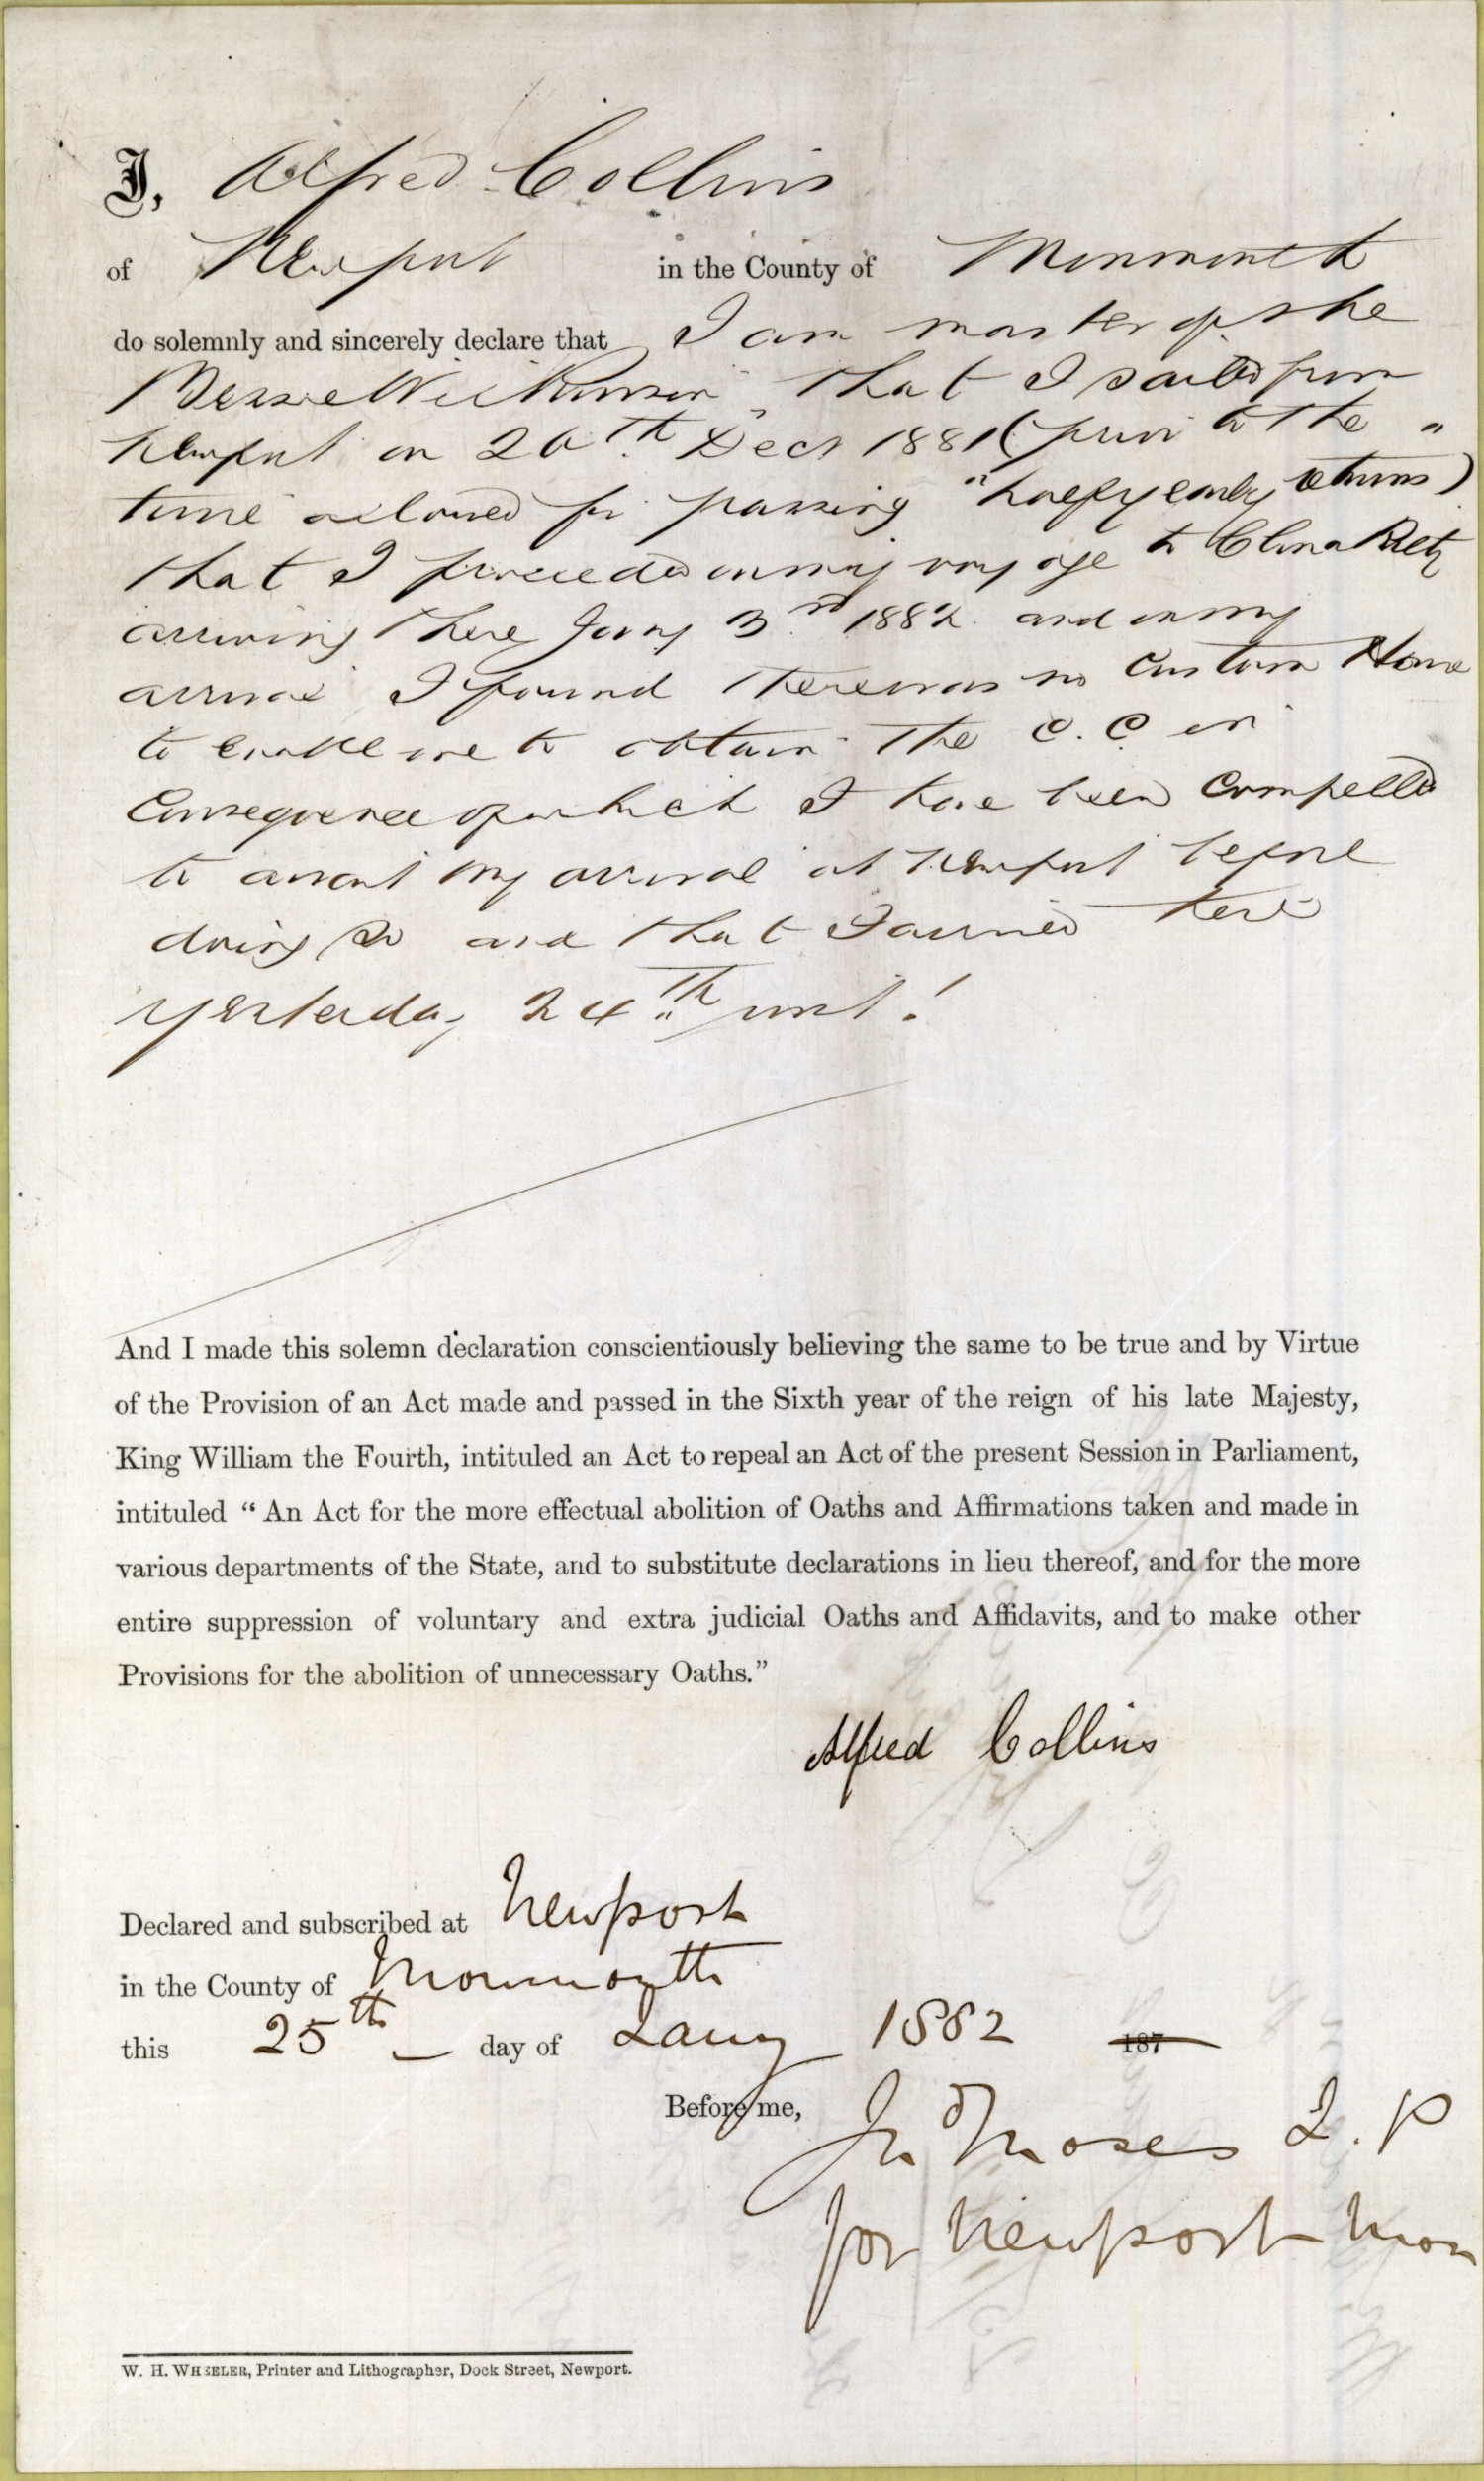 I, Alfred Collins
of Newport in the County of Monmouth
do solemnly and sincerely declare that I am master of the
Bessie Wilkinson that I sailed from
Newport on 20th Decr 1881 (prior to the "
time allowed for passing "halfyearly returns)
that I proceeded on my voyage to
arriving there Jany 3rd 1882. and on my
arrival I found there was no Custom House
to enable me to obtain the C. C in
Consequence of which I have been Compelled
to await my arrival at Newport before
doing so and that I arrived here
yesterday 24th inst!
And I made this solemn declaration conscientiously believing the same to be true and by Virtue
of the Provision of an Act made and passed in the Sixth year of the reign of his late Majesty,
King William the Fourth, intituled an Act to repeal an Act of the present Session in Parliament,
intituled “ An Act for the more effectual abolition of Oaths and Affirmations taken and made in
various departments of the State, and to substitute declarations in lieu thereof, and for the more
entire suppression of voluntary and extra judicial Oaths and Affidavits, and to make other
Provisions for the abolition of unnecessary Oaths.”
Alfred Collins
Declared and subscribed at Newport
in the County of Monmouth
this 25th day of Jany 1882 187
Before me,
Moses J. P
for Newport Mon
W. H. WHEELER, Printer and Lithographer, Dock Street, Newport.